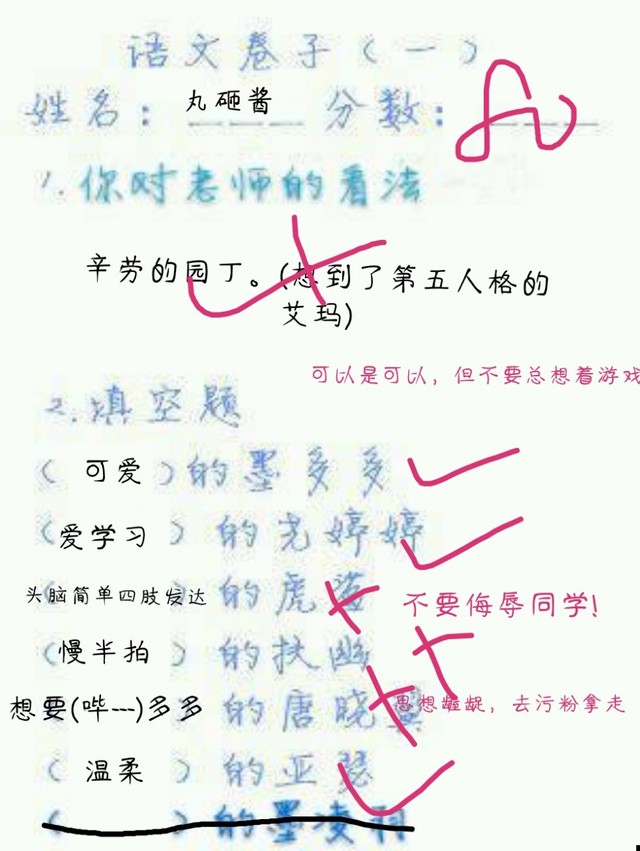 语文卷子(一)
姓名: 丸砸酱 分数:
1.你对老师的看法
辛劳的园丁。(想到了第五人格的
艾玛)
可以是可以,但不要总想着游戏
2.填空题
(可爱)的墨多多
(爱学习)的尧婷婷
头脑简单四肢发达的虎鲨 不要侮辱同学!
(慢半拍)的扶幽
想要(哔---)多多的唐晓翼 思想龌龊,去污粉拿走
(温柔)的亚瑟
( )的墨凌羽